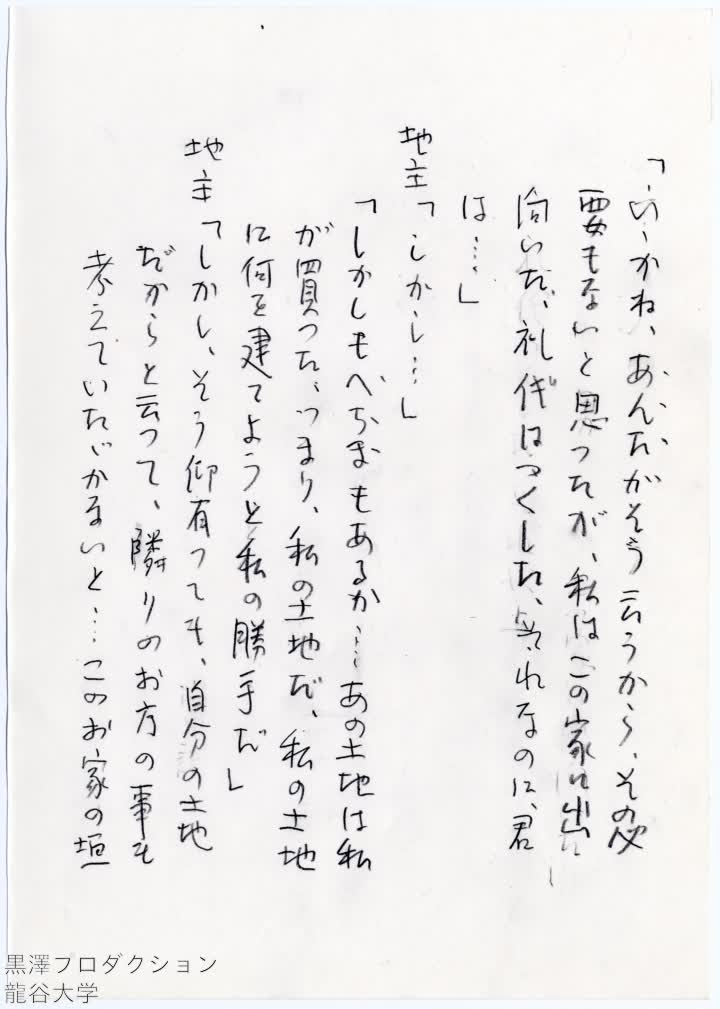 「いゝかね、あんたがそう云うから、その必
要もないと思ったが、私はこの家に出
向いた、礼代はつくした、それなのに、君
は…」
地主「しかし…」
「しかしもへちまもあるか…あの土地は私
が買った、つまり、私の土地だ、私の土地
に何を建てようと私の勝手だ」
地主「しかし、そう仰有っても、自分の土地
だからと云って、隣りのお方の事も
考えていたゞかないと…このお家の垣
黒澤プロダクション
龍谷大学